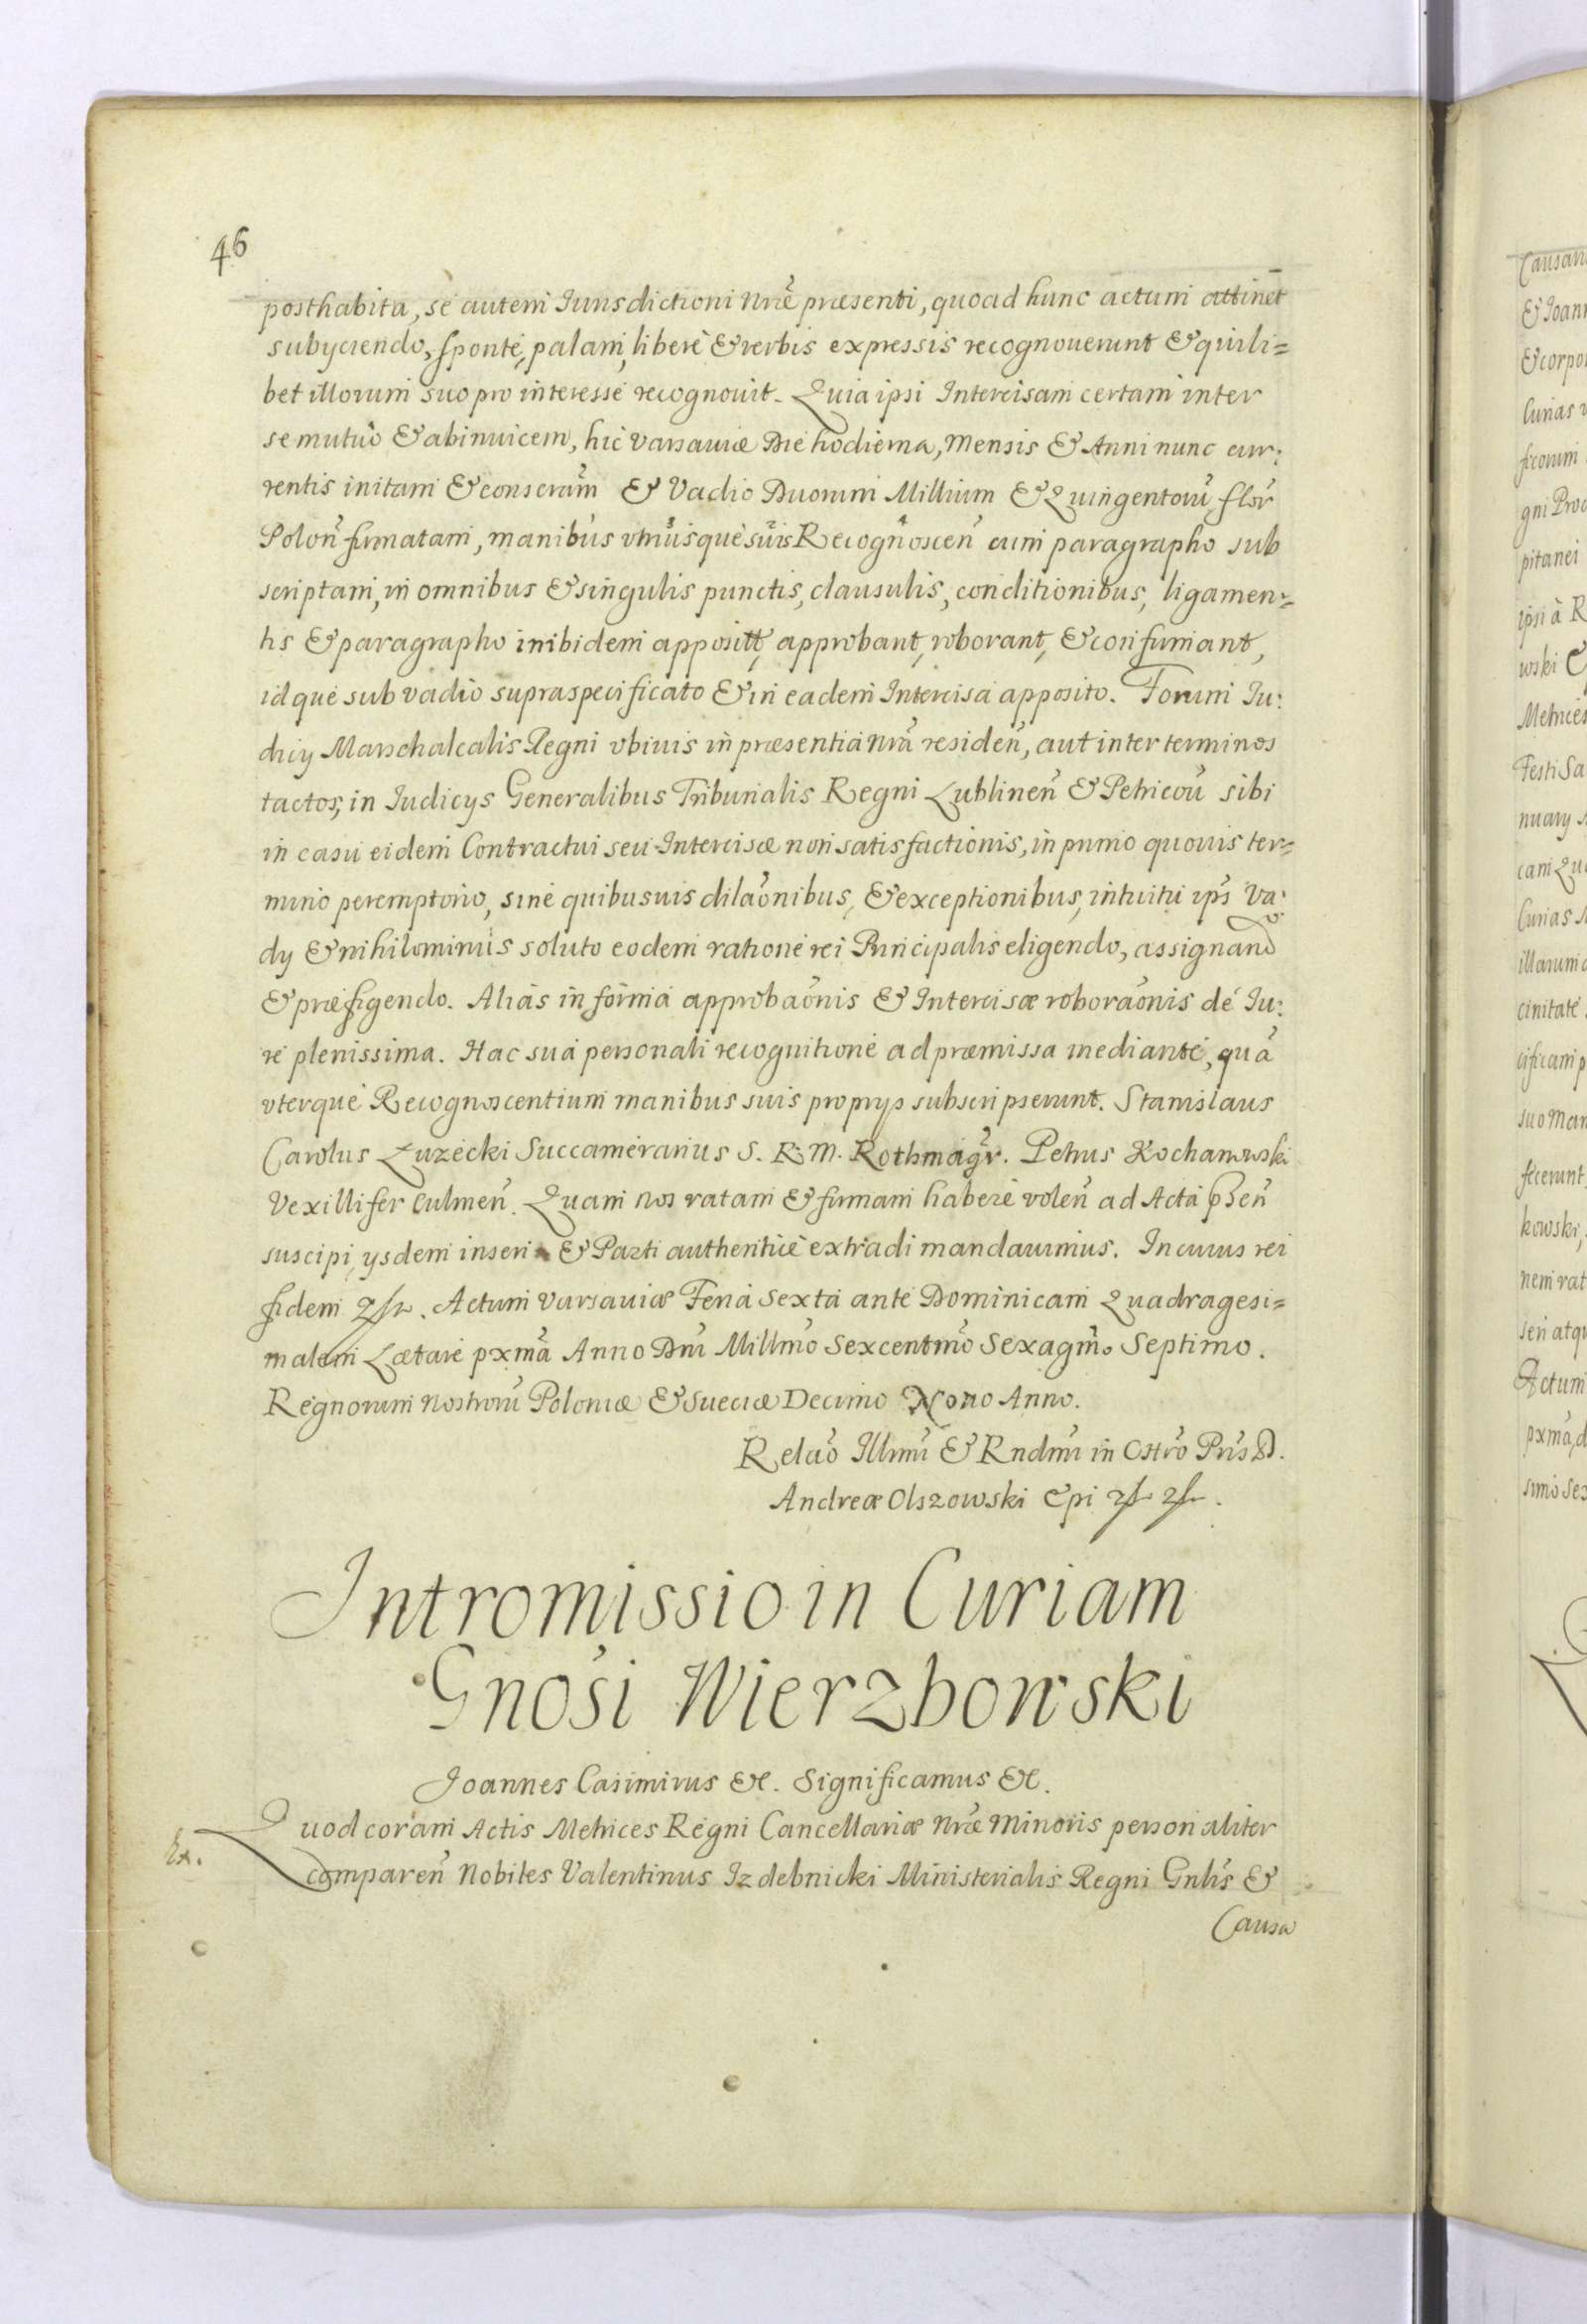 46
posthabita, se autem Iurisdictioni Nræ præsenti, quoad hunc actum attinet
subyciendo, sponte, palam, libere & verbis expressis recognouerunt & quili=
bet illorum suo pro interesse recognouit. Quia ipsi Intercisam certam inter
se mutuo & abinuicem, hic Varsauiæ Die hodierna, Mensis & Anni nunc cur:
rentis initam & conscram & Vadio Duorum Millium & Quingentoru flor
Polon firmatam, manibus vtriusque suis Recognoscen cum paragrapho sub
scriptam, in omnibus & singulis punctis, clausulis, conditionibus, ligamen=
tis & paragrapho inibidem appositt, approbant, roborant, & confirmant,
idque sub vadio supraspecificato & in eadem Intercisa apposito. Forum Iu:
dicy Marschalcalis Regni vbiuis in præsentia Nra residen, aut inter terminos
tactos, in Iudicys Generalibus Tribunalis Regni Lublinen & Petricou sibi
in casu eidem Contractui seu Intercisæ non satisfactionis, in primo quouis ter=
mino peremptorio, sine quibusuis dilaonibus, & exceptionibus, intuitu ips Va:
dy & nihilominus soluto eodem ratione rei Principalis eligendo, assignand
& præfigendo. Alias in forma approbaonis & Intercisæ roboraonis de Iu:
re plenissima. Hac sua personali recognitione ad præmissa mediante, qua
vterque Recognoscentium manibus suis proprys subscripserunt. Stanislaus
Carolus Luzecki Succamerarius S. R. M. Rothmagr. Petrus Kochanowski
Vexillifer Culmen. Quam Nos ratam & firmam habere volen ad Acta psen
suscipi, ysdem inseri & Parti authentice extradi mandauimus. In cuius rei
fidem . Actum Varsauiæ Feria Sexta ante Dominicam Quadragesi=
malem Lætare pxma Anno Dni Millmo Sexcentmo Sexagmo Septimo.
Regnorum Nostroru Poloniæ & Sueciæ Decimo Nono Anno.
Relao Illmi & Rndmi in Chro Pris D.
Andreæ Olszowski Epi
Intromissio in Curiam
Gnosi Wierzbowski
Joannes Casimirus &c. Significamus &c.
Quod coram Actis Metrices Regni Cancellariæ Nræ Minoris personaliter
Ex.
comparen Nobiles Valentinus Izdebnicki Ministerialis Regni Gnlis &
Causa